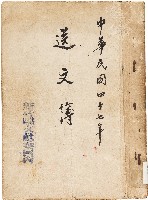 中華民國四十七年
送文簿